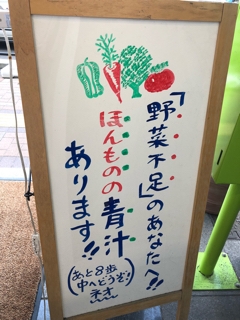 「野菜不足」のあなたへ!!
ほんものの青汁
あります!!
(あと8歩
中へどうぞ!
ネオ)